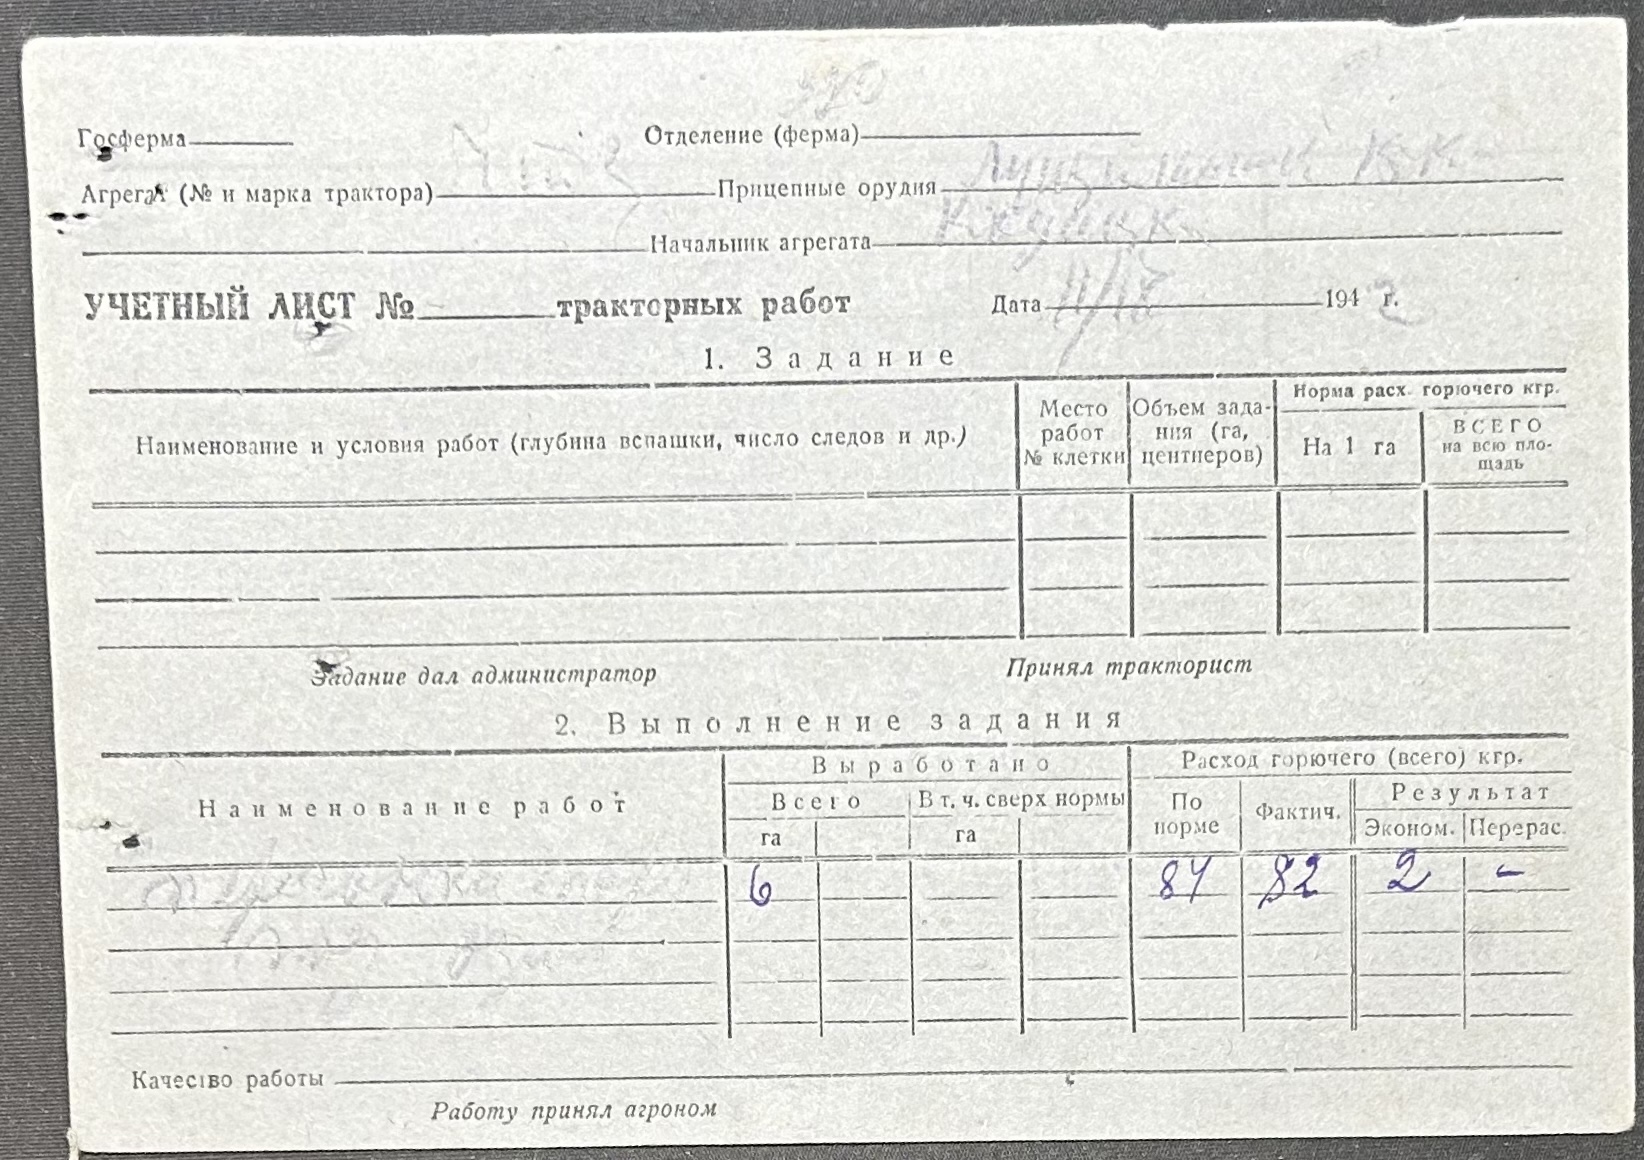 Госферма Отделение (ферма)
Агрегат (№ и марка трактора) Прицепные орудия
Начальник агрегата
УЧЕТНЫЙ ЛИСТ № тракторных работ Дата 194 г.
1. Задание
Наименование и условия работ (глубина вспашки, число следов и др.)
Место работ № клетки
Объем зада-
ния (га,
центнеров)
Норма расх. горючего кгр.
На 1 га
ВСЕГО
на всю пло-
щадь
Задание дал администратор Принял тракторист
2. Выполнение задания
Наименование работ
Выработано
Всего В т. ч. сверх нормы
га га
Расход горючего (всего) кгр.
По норме
Фактич.
Результат
Эконом. Перерас.
6 84 82 2 –
Качество работы
Работу принял агроном